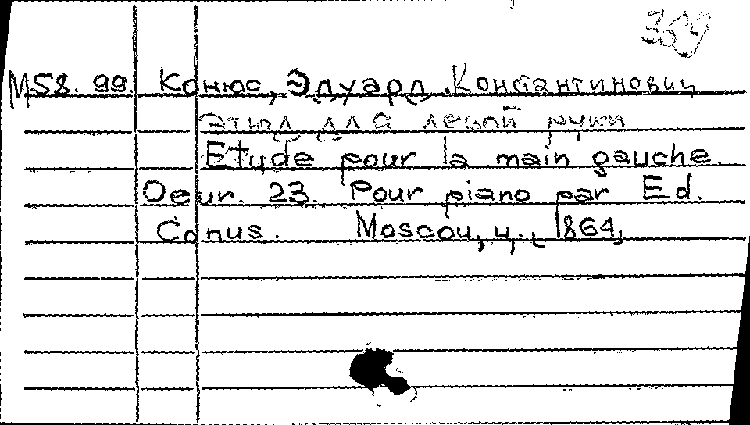 359
M58. 99. Конюс, Эдуард Константинович
Этюд для левой руки
Etude pour la main gauche
Oeur. 23. Pour piano par Ed.
Conus. Moscou, ц., 1864,